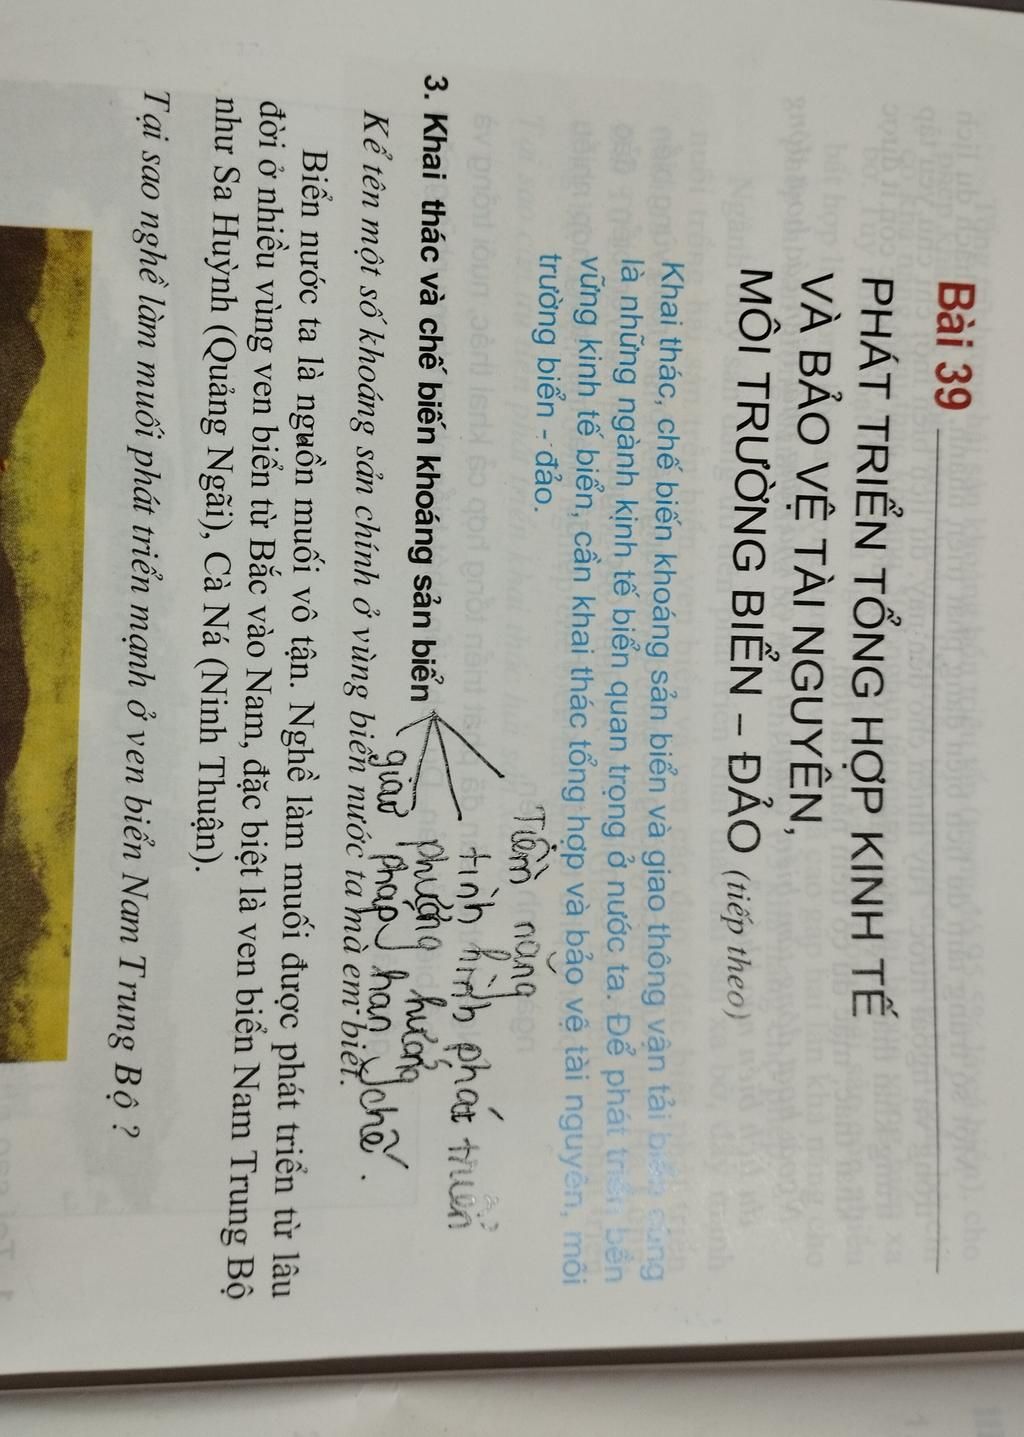 Bài 39
PHÁT TRIỂN TỔNG HỢP KINH TẾ
VÀ BẢO VỆ TÀI NGUYÊN,
MÔI TRƯỜNG BIỂN – ĐẢO (tiếp theo)
Khai thác, chế biến khoáng sản biển và giao thông vận tải biển cũng
là những ngành kinh tế biển quan trọng ở nước ta. Để phát triển bền
vững kinh tế biển, cần khai thác tổng hợp và bảo vệ tài nguyên, môi
trường biển - đảo.
Tiềm năng
tình hình phát triển
3. Khai thác và chế biến khoáng sản biển
phương hướng
giải pháp hạn chế
Kể tên một số khoáng sản chính ở vùng biển nước ta mà em biết.
Biển nước ta là nguồn muối vô tận. Nghề làm muối được phát triển từ lâu
đời ở nhiều vùng ven biển từ Bắc vào Nam, đặc biệt là ven biển Nam Trung Bộ
như Sa Huỳnh (Quảng Ngãi), Cà Ná (Ninh Thuận).
Tại sao nghề làm muối phát triển mạnh ở ven biển Nam Trung Bộ ?